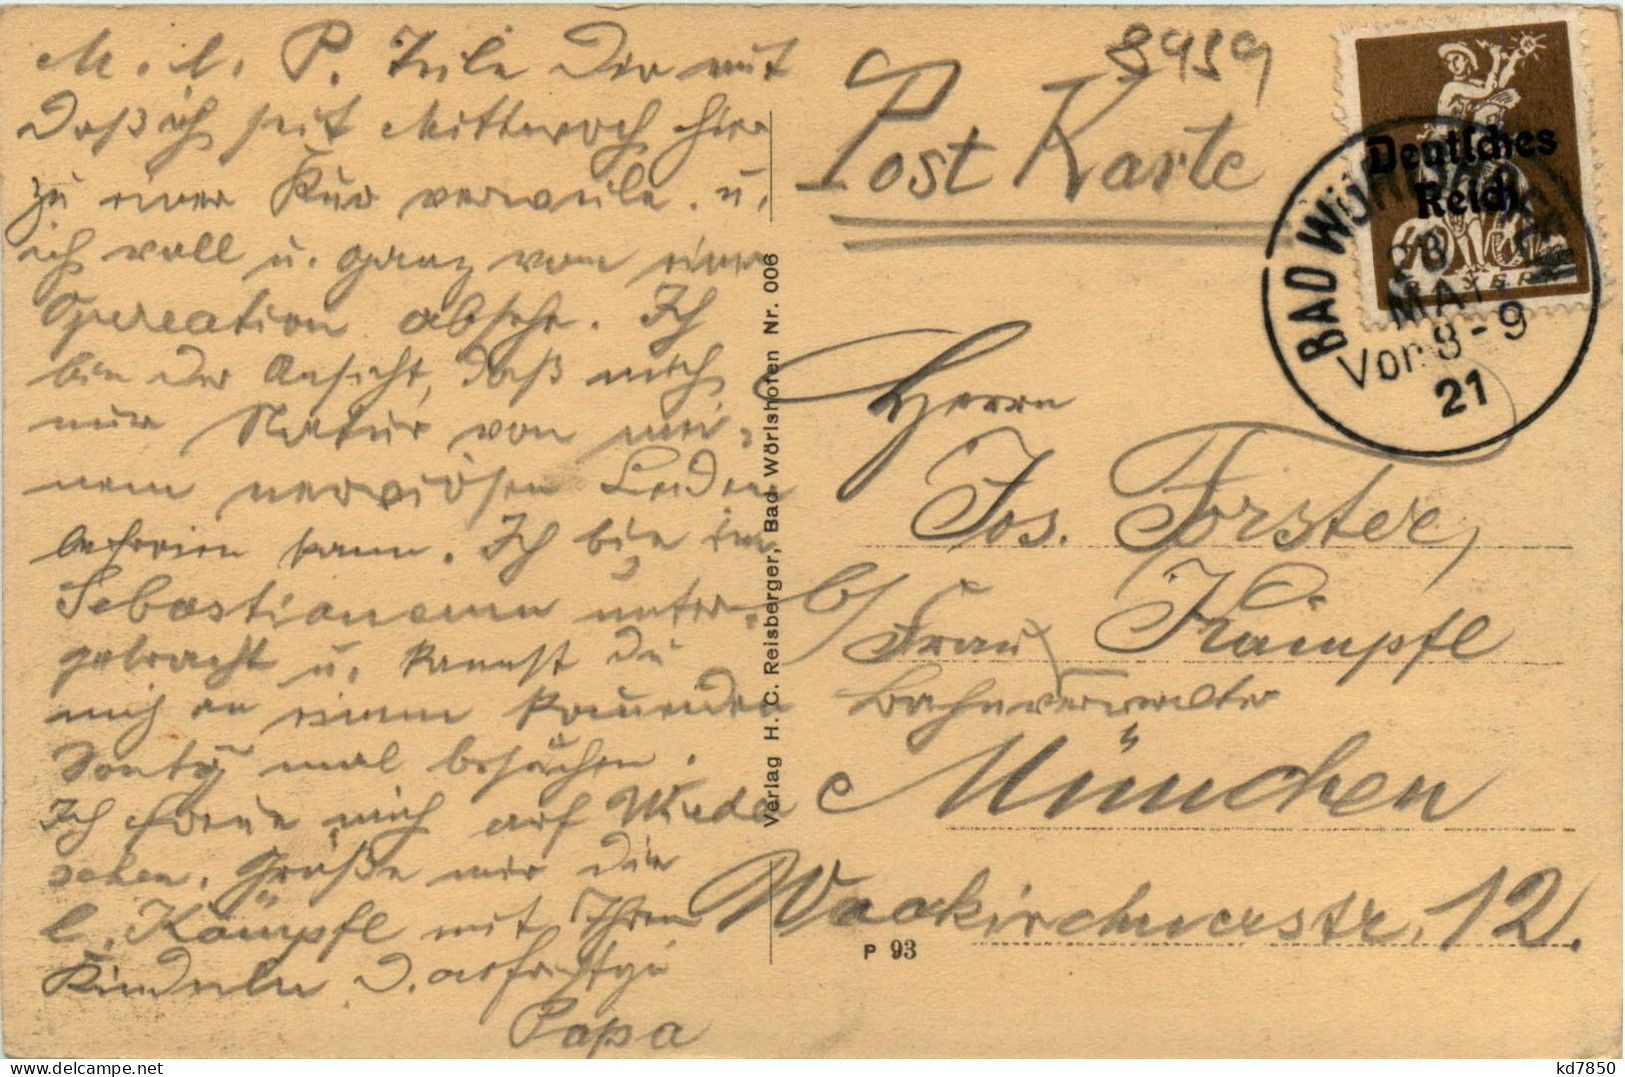 M. l. P. Teile Dir mit
Daß ich seit Mittwoch hier
zu einer Kur verweile. u.
ich voll u. ganz von einer
Opereation absehe. Ich
bin der Ansicht, daß mich
nur Natur von mei-
nem nerviösen Leiden
befreien kann. Ich bin im
Sebastianeum unter-
gebracht u. kannst Du
mich an einem kommenden
Sontg mal besuchen.
Ich freue mich auf Wieder
sehen. Grüße mir die
l. Kämpfl mit Ihren
Kindeln D. aufrichtger
Papa
Verlag H. C. Reisberger, Bad Wörishofen Nr. 006
8959
Post Karte
Deutsches
Reich
BAYERN
BAD WÖRISHOFEN
28
MAI
Vor 8-9
21
Herrn
Jos. Forster,
b/ Frau Kämpfl
Bahnverwalter
München
Waakirchnerstr. 12.
P 93
kd7850